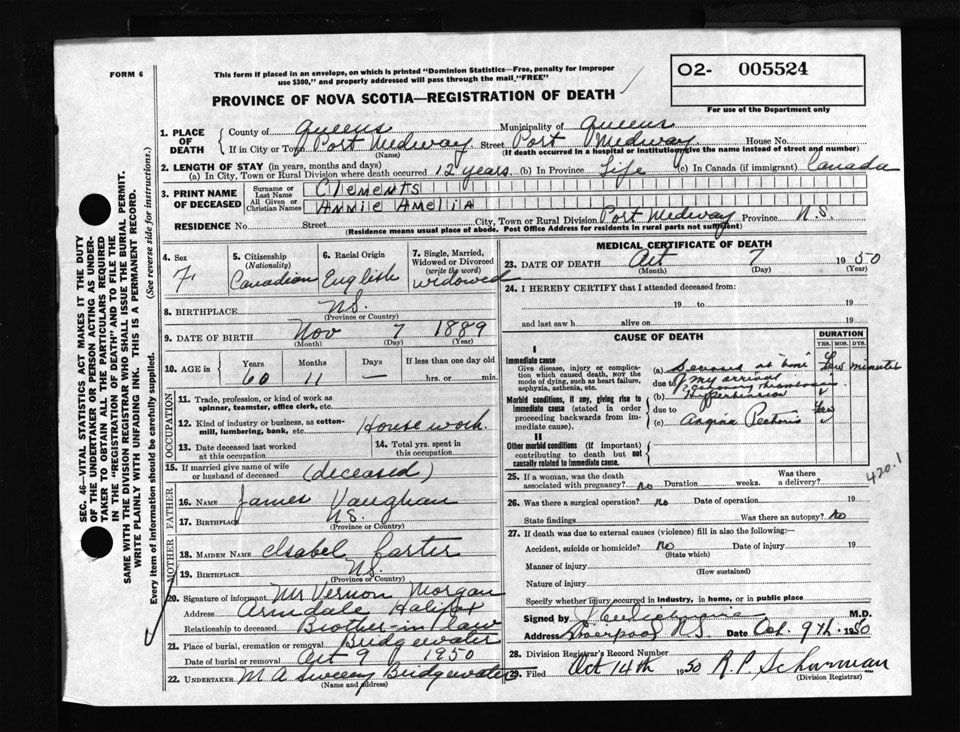 FORM 6
This form if placed in an envelope, on which is printed "Dominion Statistics—Free, penalty for improper
use $300," and properly addressed will pass through the mail "FREE"
O2- 005524
For use of the Department only
PROVINCE OF NOVA SCOTIA—REGISTRATION OF DEATH
1. PLACE OF DEATH
County of Queens Municipality of Queens
If in City or Town Port Medway Street Port Medway House No.
(Name) (If death occurred in a hospital or institution give the name instead of street and number)
2. LENGTH OF STAY (in years, months and days)
(a) In City, Town or Rural Division where death occurred 12 years (b) In Province Life (c) In Canada (if immigrant) Canada
3. PRINT NAME OF DECEASED
Surname or Last Name Clements
All Given or Christian Names Annie Amelia
RESIDENCE No. Street City, Town or Rural Division Port Medway Province N.S.
(Residence means usual place of abode. Post Office Address for residents in rural parts not sufficient)
4. Sex F
5. Citizenship (Nationality) Canadian
6. Racial Origin English
7. Single, Married, Widowed or Divorced (write the word) widowed
8. BIRTHPLACE NS.
(Province or Country)
9. DATE OF BIRTH Nov 7 1889
(Month) (Day) (Year)
10. AGE in Years Months Days If less than one day old
60 11 — hrs. or min.
OCCUPATION
11. Trade, profession, or kind of work as
spinner, teamster, office clerk, etc.
12. Kind of industry or business, as cotton-
mill, lumbering, bank, etc. House work.
13. Date deceased last worked
at this occupation
14. Total yrs. spent in
this occupation
15. If married give name of wife
or husband of deceased (deceased)
FATHER
16. NAME James Vaughan
17. BIRTHPLACE NS.
(Province or Country)
MOTHER
18. MAIDEN NAME Isabel Carter
19. BIRTHPLACE NS.
(Province or Country)
20. Signature of informant Mr Vernon Morgan
Address Armdale Halifax
Relationship to deceased Brother-in-law
21. Place of burial, cremation or removal Bridgewater
Date of burial or removal Oct 9 1950
22. UNDERTAKER M A Sweeny Bridgewater
(Name and address)
MEDICAL CERTIFICATE OF DEATH
23. DATE OF DEATH Oct 7 1950
(Month) (Day) (Year)
24. I HEREBY CERTIFY that I attended deceased from:
19 to 19
and last saw h alive on 19
CAUSE OF DEATH
DURATION
YRS. MOS. DYS.
I
Immediate cause
Give disease, injury or complica-
tion which caused death, NOT the
mode of dying, such as heart failure,
asphyxia, asthenia, etc.
(a) at home few minutes
due to my arrival
Coronary thrombosis
Morbid conditions, if any, giving rise to
immediate cause (stated in order
proceeding backwards from im-
mediate cause).
(b) Hypertension
due to
(c) Angina Pectoris
II
Other morbid conditions (if important)
contributing to death but not
causally related to immediate cause.
25. If a woman, was the death
associated with pregnancy? no Duration weeks. Was there
a delivery?
420.1
26. Was there a surgical operation? no Date of operation 19
State findings Was there an autopsy? No
27. If death was due to external causes (violence) fill in also the following:
Accident, suicide or homicide? No Date of injury 19
(State which)
Manner of injury
(How sustained)
Nature of injury
Specify whether injury occurred in industry, in home, or in public place
Signed by M.D.
Address Liverpool N.S Date Oct. 9th. 1950
28. Division Registrar's Record Number
29. Filed Oct 14th 1950 R.P. Schurman
(Division Registrar)
SEC. 46—VITAL STATISTICS ACT MAKES IT THE DUTY
OF THE UNDERTAKER OR PERSON ACTING AS UNDER-
TAKER TO OBTAIN ALL THE PARTICULARS REQUIRED
IN THE "REGISTRATION OF DEATH" AND TO FILE THE
SAME WITH THE DIVISION REGISTRAR WHO SHALL ISSUE THE BURIAL PERMIT.
WRITE PLAINLY WITH UNFADING INK. THIS IS A PERMANENT RECORD.
Every item of information should be carefully supplied. (See reverse side for instructions.)